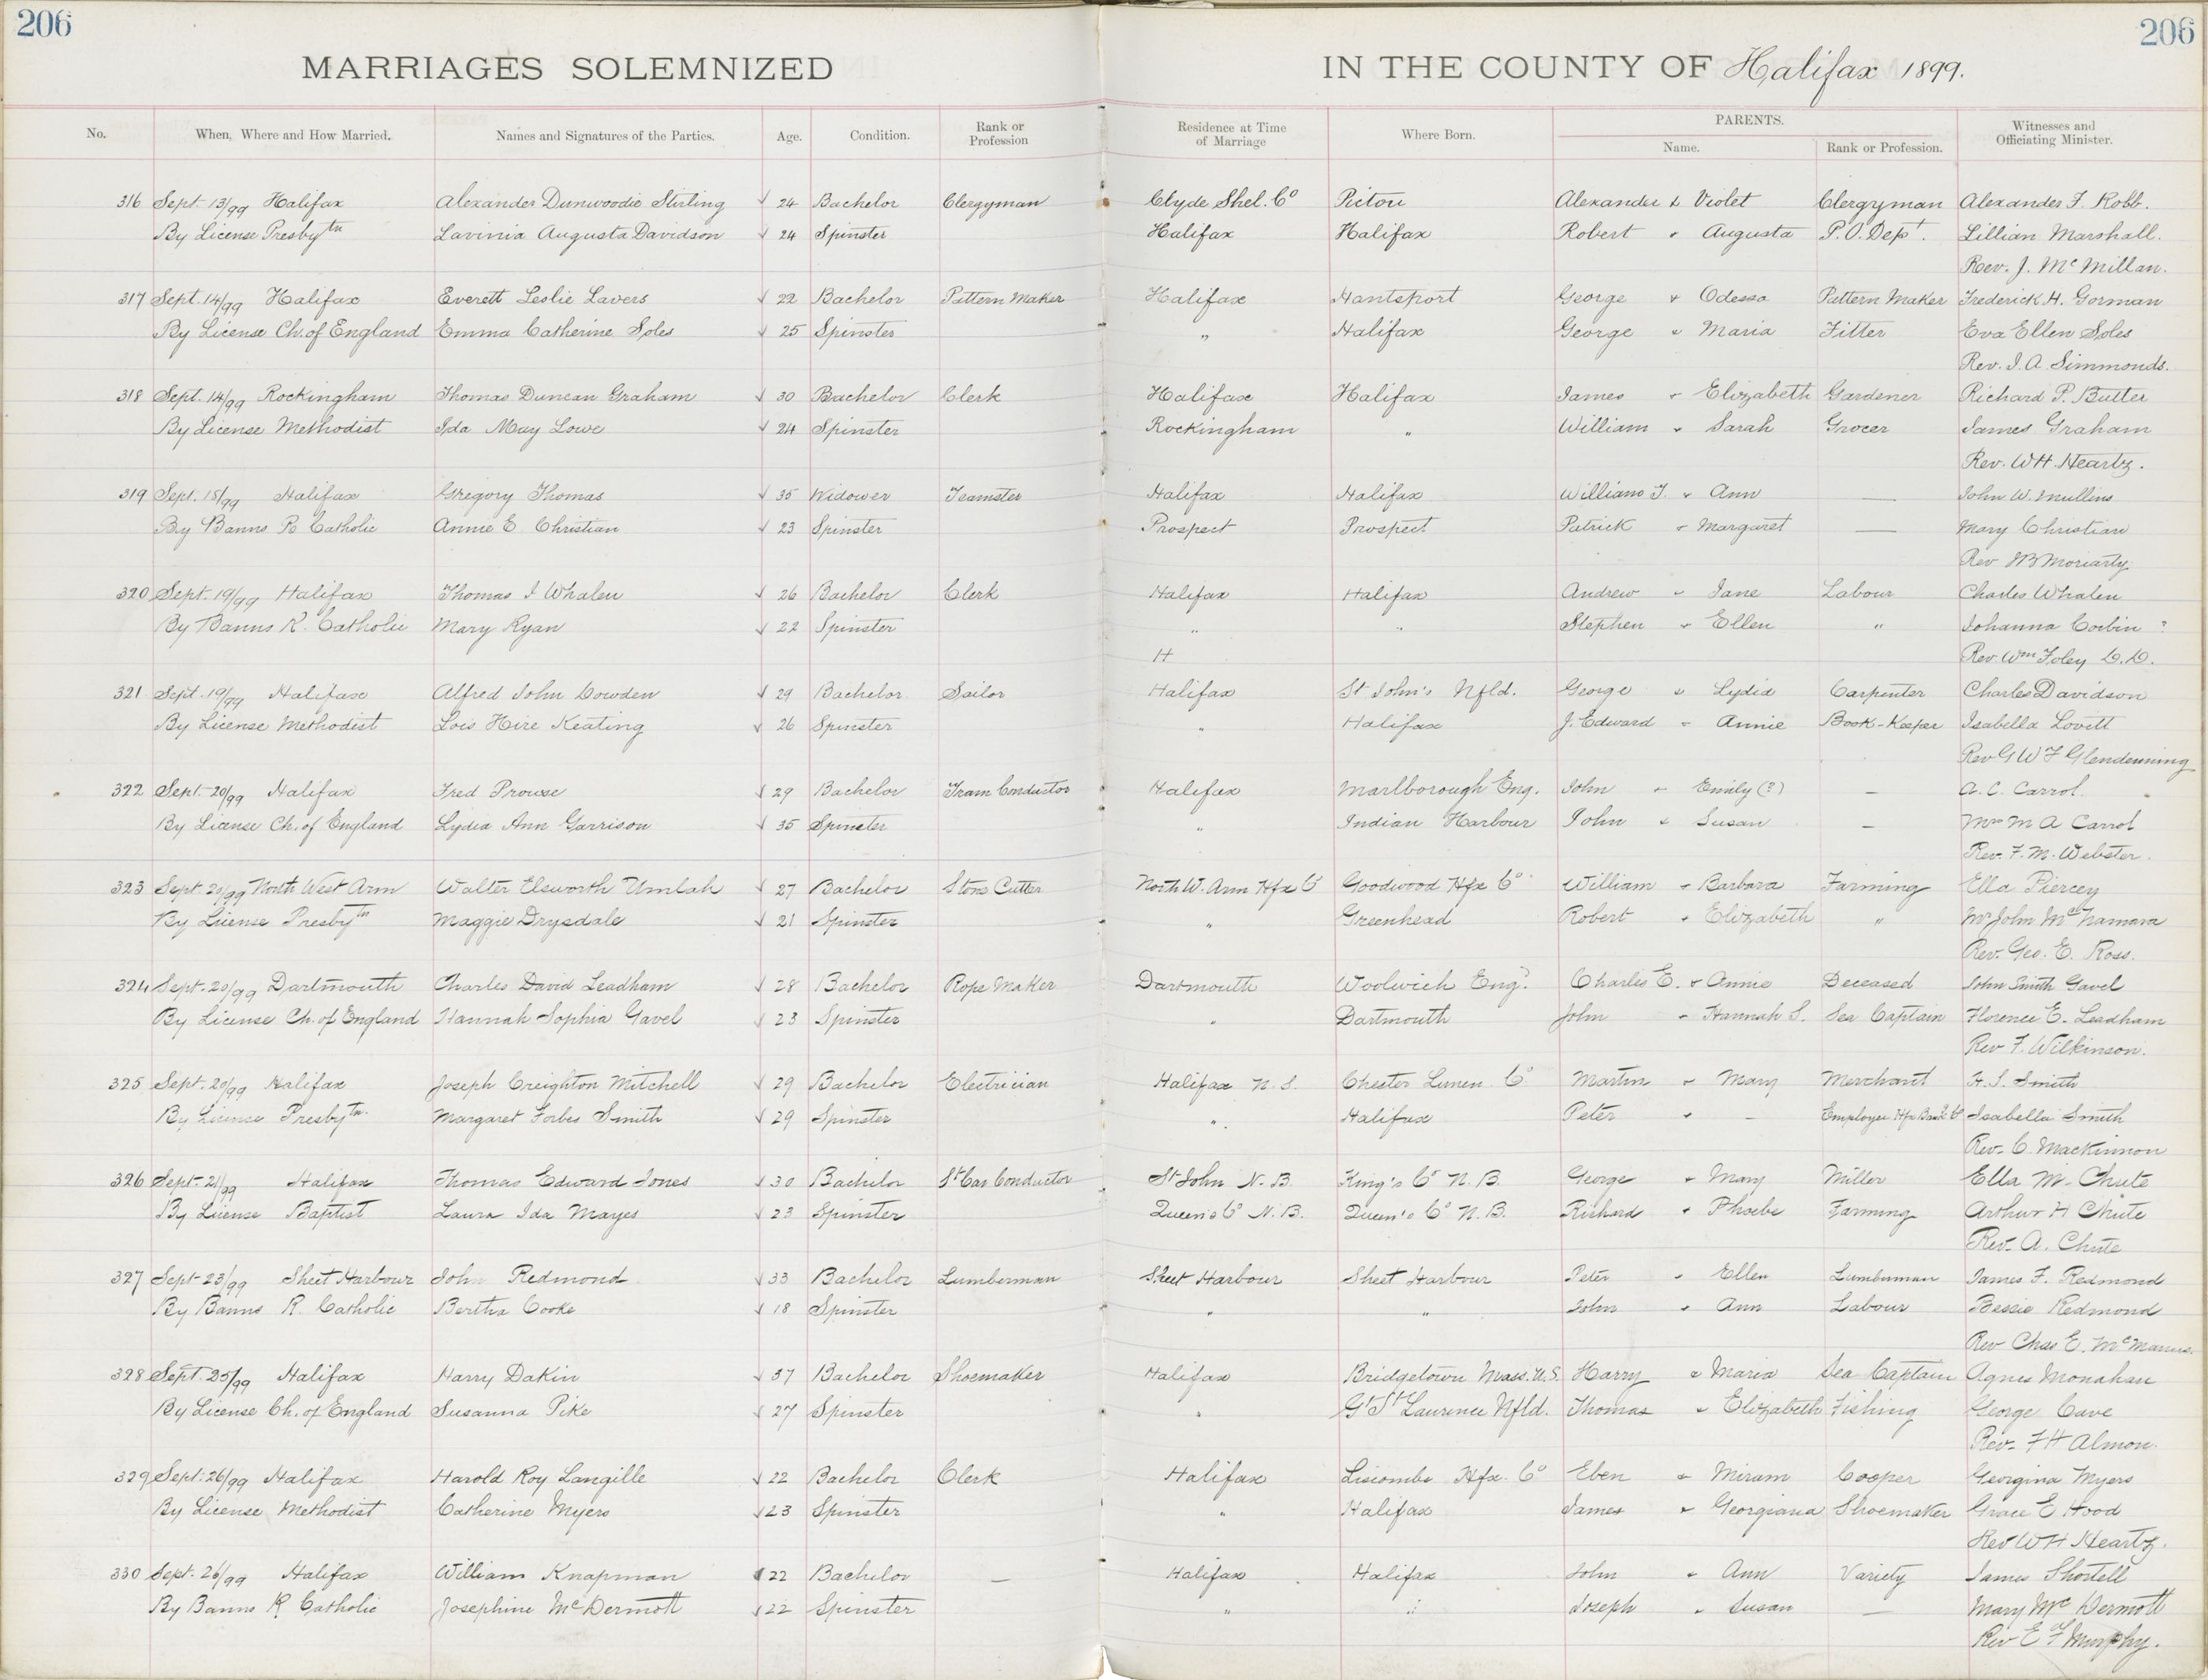 206
206
MARRIAGES SOLEMNIZED
IN THE COUNTY OF Halifax 1899.
No. When, Where and How Married. Names and Signatures of the Parties. Age. Condition. Rank or Profession Residence at Time of Marriage Where Born. PARENTS. Name. Rank or Profession. Witnesses and Officiating Minister.
316 Sept. 13/99 Halifax Alexander Dunwoodie Stirling √ 24 Bachelor Clergyman Clyde Shel. Co Pictou Alexander & Violet Clergyman Alexander F. Robb.
By License Presbytn Lavinia Augusta Davidson √ 24 Spinster Halifax Halifax Robert " Augusta P.O. Dept. Lillian Marshall.
Rev. J. Mc Millan.
317 Sept. 14/99 Halifax Everett Leslie Lavers √ 22 Bachelor Pattern Maker Halifax Hantsport George & Odessa Pattern Maker Frederick H. Gorman
By License Ch. of England Emma Catherine Soles √ 25 Spinster " Halifax George " Maria Fitter Eva Ellen Soles
Rev. I. A. Simmonds.
318 Sept. 14/99 Rockingham Thomas Duncan Graham √ 30 Bachelor Clerk Halifax Halifax James " Elizabeth Gardener Richard P. Butter
By License Methodist Ida May Lowe √ 24 Spinster Rockingham " William " Sarah Grocer James Graham
Rev. W H. Heartz.
319 Sept. 18/99 Halifax Gregory Thomas √ 35 Widower Teamster Halifax Halifax William J. " Ann — John W. Mullins
By Banns R Catholic Annie E Christian √ 23 Spinster Prospect Prospect Patrick " Margaret — Mary Christian
Rev Moriarty
320 Sept. 19/99 Halifax Thomas J Whalen √ 26 Bachelor Clerk Halifax Halifax Andrew " Jane Labour Charles Whalen
By Banns R. Catholic Mary Ryan √ 22 Spinster " " Stephen " Ellen " Johanna Corbin ?
H Rev. Wm Foley D.D.
321 Sept. 19/99 Halifax Alfred John Cowden √ 29 Bachelor Sailor Halifax St John's Nfld. George " Lydia Carpenter Charles Davidson
By License Methodist Lois Hire Keating √ 26 Spinster " Halifax J. Edward " Annie Book-Keeper Isabella Lovett
Rev G W F Glendenning
322 Sept. 20/99 Halifax Fred Prowse √ 29 Bachelor Tram Conductor Halifax Marlborough Eng. John " Emily (?) — A. C. Carrol.
By License Ch. of England Lydia Ann Garrison √ 35 Spinster " Indian Harbour John " Susan — Mrs M A Carrol
Rev. F. M. Webster.
323 Sept. 20/99 North West Arm Walter Elsworth Umlah √ 27 Bachelor Stone Cutter North W. Arm Hfx Co Goodwood Hfx Co William " Barbara Farming Ella Piercey
By License Presbytn Maggie Drysdale √ 21 Spinster " Greenhead Robert " Elizabeth " Mr John McNamara
Rev. Geo. E. Ross.
324 Sept. 20/99 Dartmouth Charles David Leadham √ 28 Bachelor Rope Maker Dartmouth Woolwich Eng. Charles E. " Annie Deceased John Smith Gavel
By License Ch. of England Hannah Sophia Gavel √ 23 Spinster " Dartmouth John " Hannah S. Sea Captain Florence E. Leadham
Rev F. Wilkinson.
325 Sept. 20/99 Halifax Joseph Creighton Mitchell √ 29 Bachelor Electrician Halifax N. S. Chester Lunen. Co Martin " Mary Merchant H. S. Smith
By License Presbytn. Margaret Forbes Smith √ 29 Spinster " Halifax Peter " — Employee Hfx Bank Co Isabella Smith
Rev. C. Mackinnon
326 Sept. 21/99 Halifax Thomas Edward Jones √ 30 Bachelor St Car Conductor St John N. B. King's Co N. B. George " Mary Miller Ella M. Chute
By License Baptist Laura Ida Mayes √ 23 Spinster Queen's Co N. B. Queen's Co N. B. Richard " Phoebe Farming Arthur H Chute
Rev. A. Chute
327 Sept 23/99 Sheet Harbour John Redmond √ 33 Bachelor Lumberman Sheet Harbour Sheet Harbour Peter " Ellen Lumberman James F. Redmond
By Banns R. Catholic Bertha Cooke √ 18 Spinster " " John " Ann Labour Bessie Redmond
Rev Chas E. McManus.
328 Sept. 25/99 Halifax Harry Dakin √ 37 Bachelor Shoemaker Halifax Bridgetown Mass. U.S. Harry " Maria Sea Captain Agnes Monahan
By License Ch. of England Susanna Pike √ 27 Spinster " Gt St Laurence Nfld. Thomas " Elizabeth Fishing George Cave
Rev. F H Almon.
329 Sept. 26/99 Halifax Harold Roy Langille √ 22 Bachelor Clerk Halifax Liscombe Hfx. Co Eben " Miriam Cooper Georgina Myers
By License Methodist Catherine Myers √ 23 Spinster " Halifax James " Georgiana Shoemaker Grace E Hood
Rev W H Heartz.
330 Sept. 26/99 Halifax William Knapman √ 22 Bachelor — Halifax Halifax John " Ann Variety James Shortell
By Banns R Catholic Josephine McDermott √ 22 Spinster " " Joseph " Susan — Mary McDermott
Rev E F Murphy.